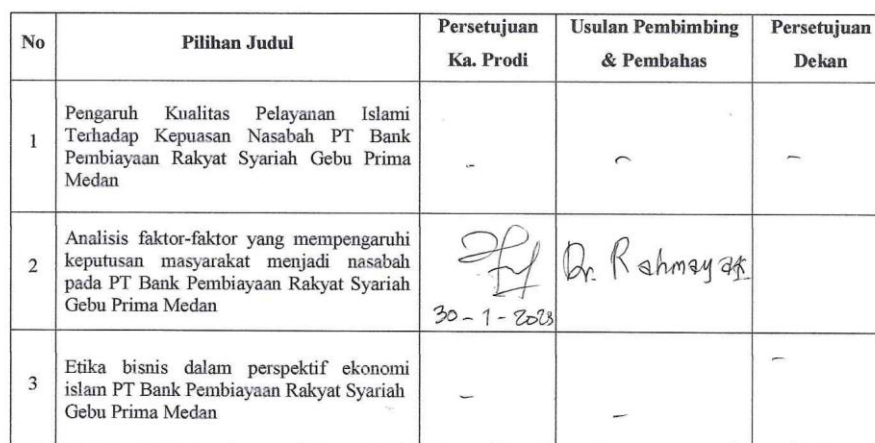 No
Pilihan Judul
Persetujuan
Ka. Prodi
Usulan Pembimbing
& Pembahas
Persetujuan
Dekan
1
Pengaruh Kualitas Pelayanan Islami
Terhadap Kepuasan Nasabah PT Bank
Pembiayaan Rakyat Syariah Gebu Prima
Medan
-
-
-
2
Analisis faktor-faktor yang mempengaruhi
keputusan masyarakat menjadi nasabah
pada PT Bank Pembiayaan Rakyat Syariah
Gebu Prima Medan
30-1-2023
Dr. Rahmayati
3
Etika bisnis dalam perspektif ekonomi
islam PT Bank Pembiayaan Rakyat Syariah
Gebu Prima Medan
-
-
-